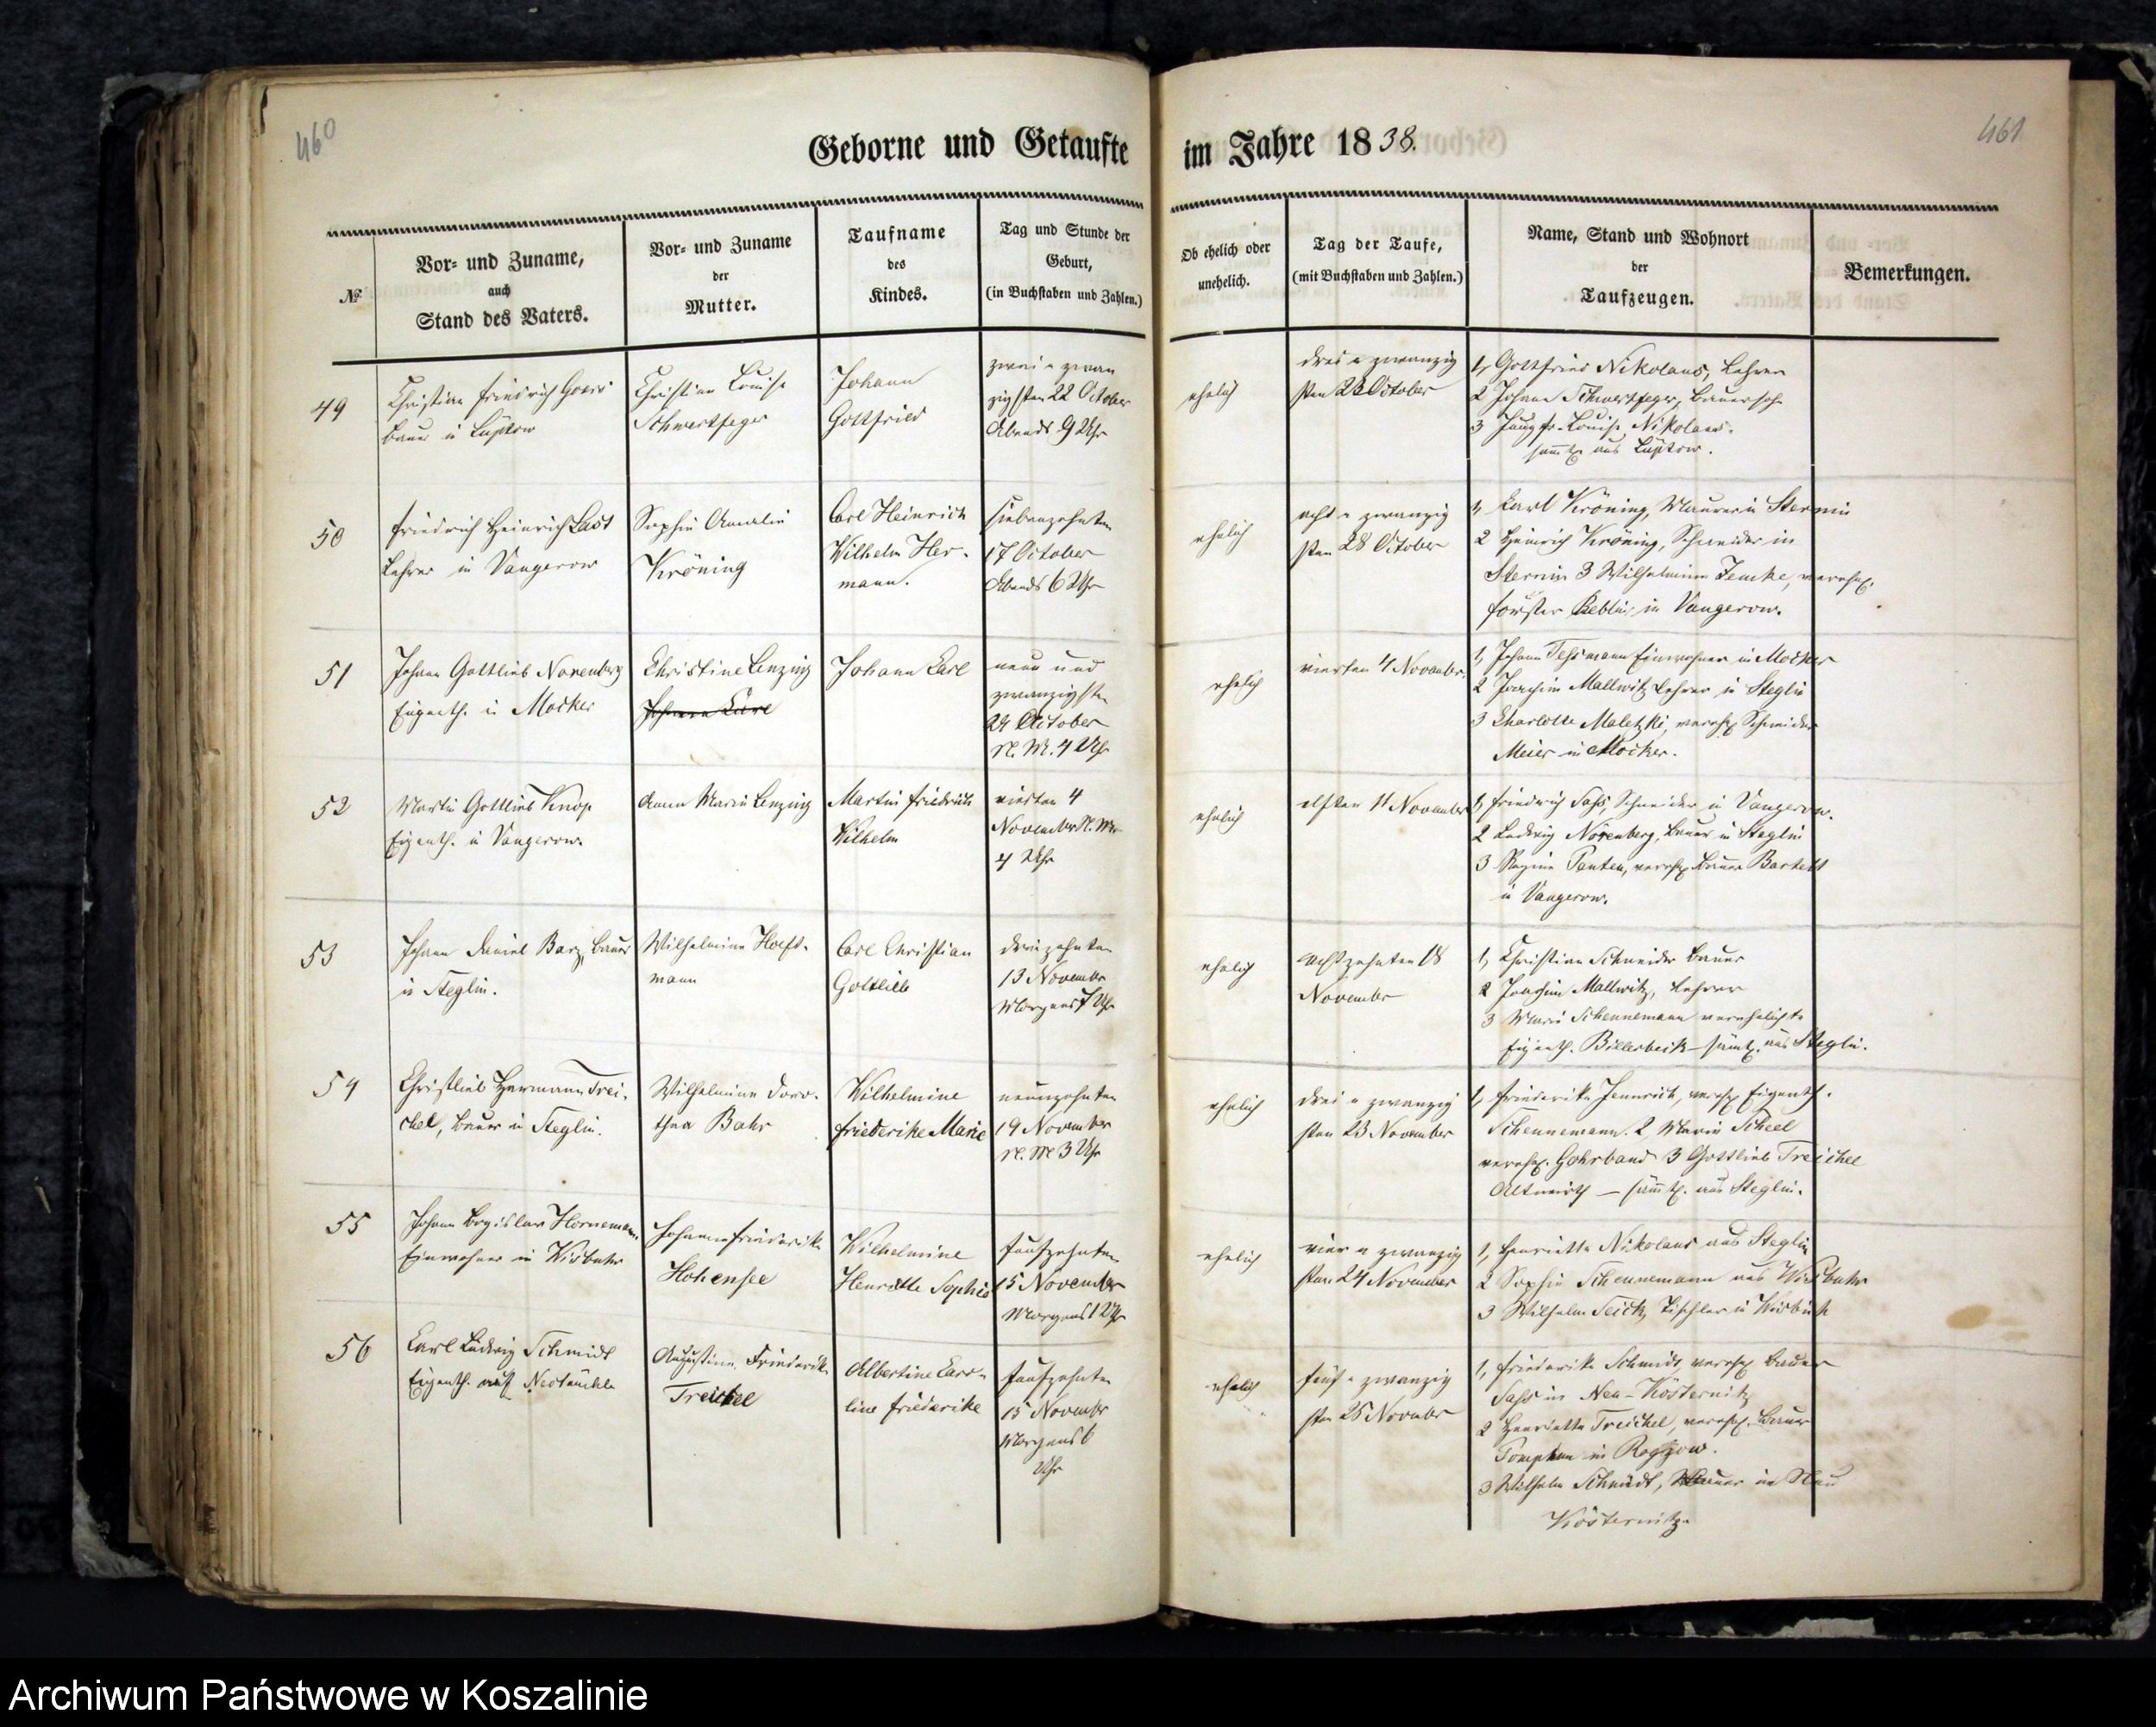 460
461
Geborne und Getaufte
im Jahre 1838.
№
Vor- und Zuname,
auch
Stand des Vaters.
Vor- und Zuname
der
Mutter.
Taufname
des
Kindes.
Tag und Stunde der
Geburt,
(in Buchstaben und Zahlen.)
Ob ehelich oder
unehelich.
Tag der Taufe,
(mit Buchstaben und Zahlen.)
Name, Stand und Wohnort
der
Taufzeugen.
Bemerkungen.
49
Christian Friedrich
Bauer in Lüptow
Christine Louise
Schwertfeger
Johann
Gottfried
zwei u zwan
zigsten 22 October
Abends 9 Uhr
ehelich
drei u zwanzig
sten October
1, Gottfried Nikolaus, Lehrer
2 Johann Schwertfeger, Bauersohn
3 Jungfr. Louise Nikolaus.
sämtl. aus Lüptow.
50
Friedrich Heinrich Last
Lehrer in Vangerow
Sophie Amalie
Kröning
Carl Heinrich
Wilhelm Her-
mann.
siebenzehnten
17 October
Abends 6 Uhr
ehelich
acht u zwanzig
sten 28 October
1, Karl Kröning, Maurer in Sternin
2 Heinrich Kröning, Schneider in
Sternin 3 Wilhelmine verehl.
Förster in Vangerow.
51
Johann Gottlieb Norenberg
Eigenth. in Mocker
Christine Lenzing
Johann Carl
Johann Carl
neun und
zwanzigsten
29 October
N. M. 4 Uhr
ehelich
vierten 4 November.
1, Johann Tessmann Einwohner in Mocker
2 Joachim Mallwitz Lehrer in Steglin
3 Charlotte Maletzki, verehl Schneider
Meier in Mocker.
52
Martin Gottlieb Knop
Eigenth. in Vangerow.
Anna Maria Lenzing
Martin Friedrich
Wilhelm
vierten 4
November N. M.
4 Uhr
ehelich
elften 11 November
1, Friedrich Sass, Schneider in Vangerow.
2 Ludwig Norenberg, Bauer in Steglin
3 Regine Panten, verehl Bauer Bartelt
in Vangerow.
53
Johann Daniel Barz, Bauer
in Steglin.
Wilhelmine Hoeft-
mann
Carl Christian
Gottlieb
dreizehnten
13 November
Morgens 7 Uhr
ehelich
achtzehnten 18
November
1, Christian Schneider Bauer
2 Joachim Mallwitz, Lehrer
3 Marie Schennemann verehelichte
Eigenth. Billerbeck — sämtl. aus Steglin.
54
Christlieb Hermann Trei-
chel, Bauer in Steglin.
Wilhelmine Doro-
thea Bahr
Wilhelmine
Friederike Marie
neunzehnten
19 November
N. M 3 Uhr
ehelich
drei u zwanzig
sten 23 November
1, Friederike Jennrich, verehl Eigenth.
Schennemann. 2, Marie Scheel
verehl. Gohrband 3 Gottlieb Treichel
Altwirth — sämtl. aus Steglin.
55
Johann Bogislav Hornemann
Einwohner in Wisbuhr
Johanne Friederike
Hohensee
Wilhelmine
Henriette Sophie
fünfzehnten
15 November
Morgens 1 Uhr
ehelich
vier u zwanzig
sten 24 November
1, Henriette Nikolaus aus Steglin
2 Sophie Schennemann aus Wisbuhr
3 Wilhelm Tischler in Wisbuhr
56
Carl Ludwig Schmidt
Eigenth. auf
Augustine Friederike
Treichel
Albertine Caro-
line Friederike
fünfzehnten
15 November
Morgens 6
Uhr
ehelich
fünf u zwanzig
sten 25 November
1, Friederike Schmidt verehl Bauer
Sass in Neu-Kösternitz
2 Henriette Treichel, verehl. Bauer
in
3 Wilhelm Schmidt, Bauer in Neu
Kösternitz.
Archiwum Państwowe w Koszalinie